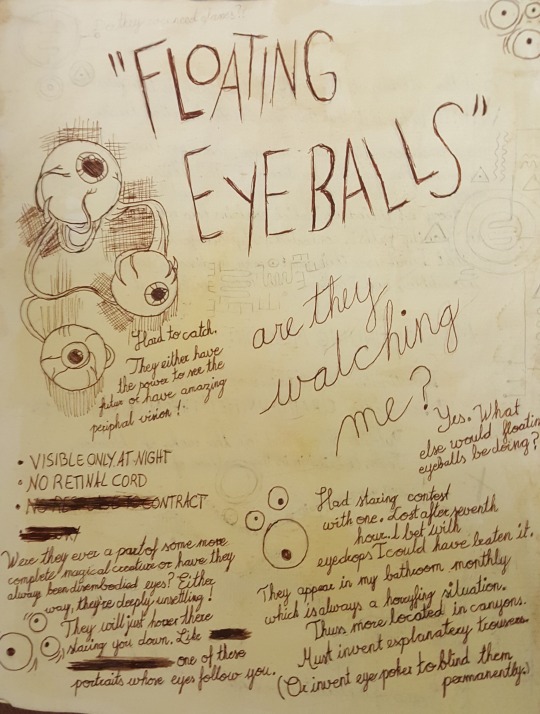 "FLOATING
EYEBALLS"
are they
watching
me?
Yes. What
else would floatin
eyeballs be doing?
Hard to catch.
They either have
the power to see the
futur or have amazing
periphal vision!
• VISIBLE ONLY AT NIGHT
• NO RETINAL CORD
• CONTRACT
Were they ever a part of some more
complete magical creature or have they
always been disembodied eyes? Either
way, they're deeply unsettling!
They will just hover there
staring you down. Like
one of these
portraits whose eyes follow you.
Had staring contest
with one. Lost after seventh
hour. I bet with
eyedrops I could have beaten it.
They appear in my bathroom monthly
which is always a horryfing situation.
Thus more located in canyons.
Must invent explanatery trousers.
(Or invent eye poker to blind them
permanently.)